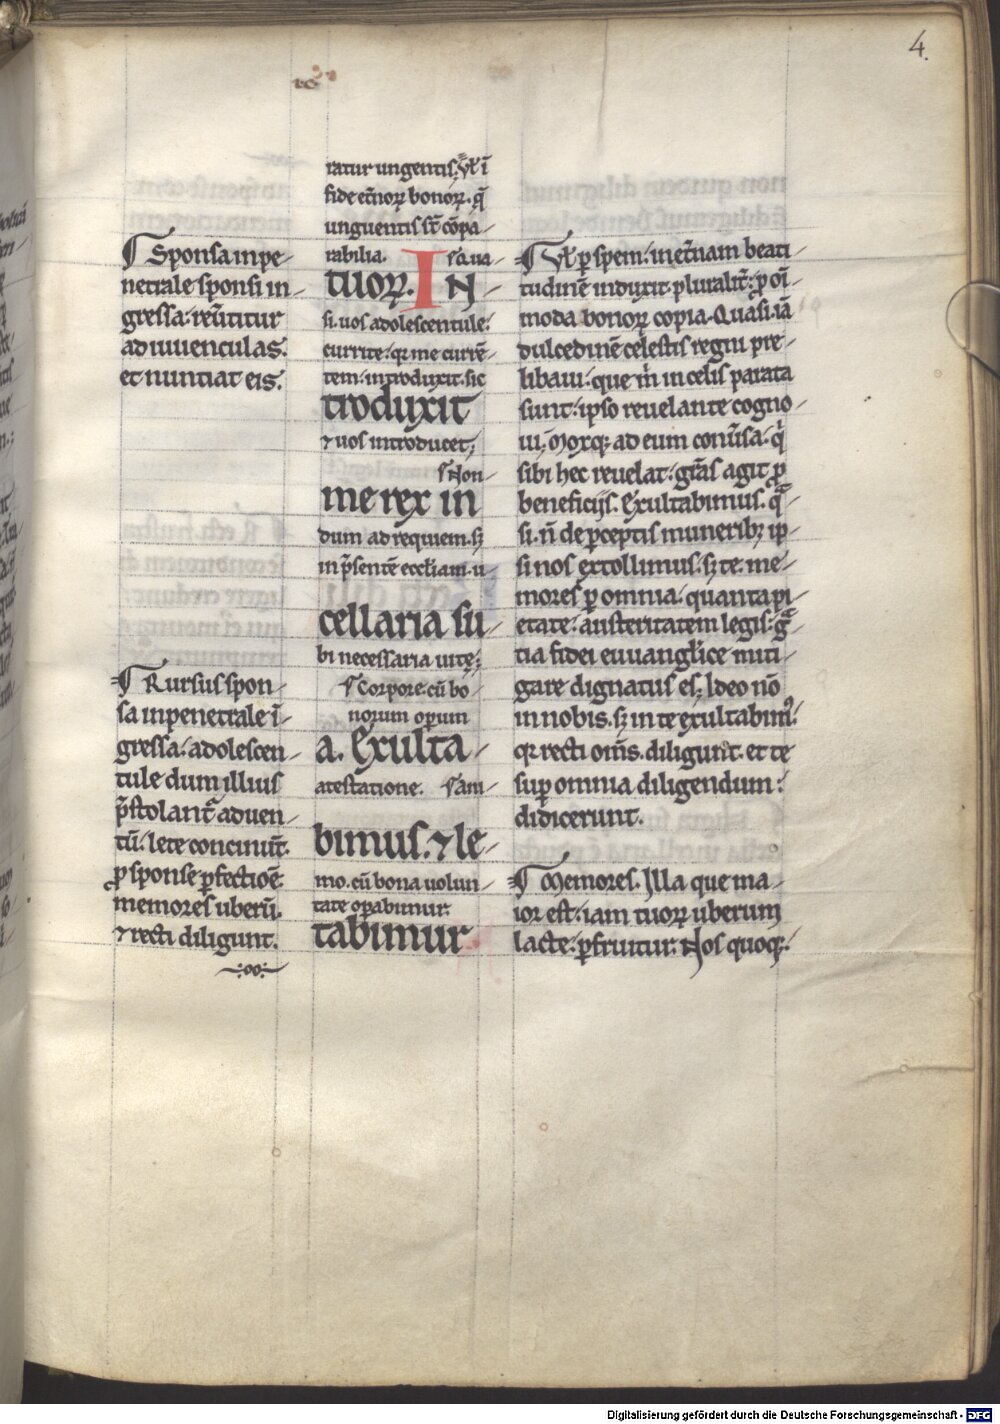 4.
¶ Sponsa in pe-
netrale sponsi in-
gressa: reũtitur
ad iuuenculas:
et nuntiat eis.
¶ Rursus spon-
sa in penetrale ĩ-
gressa: adolescen-
tule dum illius
p̃stolant̃ aduen-
tũ: lete concinuñt.
ꝓ sponse ꝑfectiõe.
memores uberũ.
⁊ recti diligunt.
ratur ungentis. Vł ĩ
fide
bonoꝝ. q̃
unguentis sĩt cõpa-
rabilia.
tuoꝝ. IN-
si. uos adolescentule:
currite: qꝛ me currẽ-
tem: introduxit. sic
troduxit
⁊ uos introducet;
Non-
me rex in
dum ad requiem. sꝫ
in p̃sentẽ eccłiam. u-
cellaria su-
bi necessaria uitę;
Corpore. cũ bo-
norum oꝑum
a. Exulta-
atestatione. am-
bimus. ⁊ le-
mo. cũ bona uolun-
tate oꝑabimur.
tabimur
¶ Vł ꝑ spem: in et̃nam beati-
tudinẽ induxit. pluralit̃: ꝓ oĩ-
moda bonoꝝ copia. Quasi. iã
dulcedinẽ celestis regni pre-
libaui: que m̃ in celis parata
sunt: ipso reuelante cogno-
ui. Moxqꝫ ad eum conũsa: q̇
sibi hec reuelat: grãs agit ꝓ
beneficijs. Exultabimus. q̃-
si. ñ de ꝑceptis muneribꝫ ip-
si nos extollimus: sꝫ te. me-
mores ꝑ omnia: quanta pi-
etate: austeritatem legis: g̃-
tia fidei euuanglice miti-
gare dignatus es; Ideo nõ
in nobis. sꝫ in te exultabimꝰ:
qꝛ recti om̃s. diligunt. et te
suꝑ omnia diligendum:
didicerunt.
¶ Memores. Illa que ma-
ior est: iam tuoꝝ uberum
lacte: ꝑfruitur. Nos quoqꝫ:
Digitalisierung gefördert durch die Deutsche Forschungsgemeinschaft - DFG